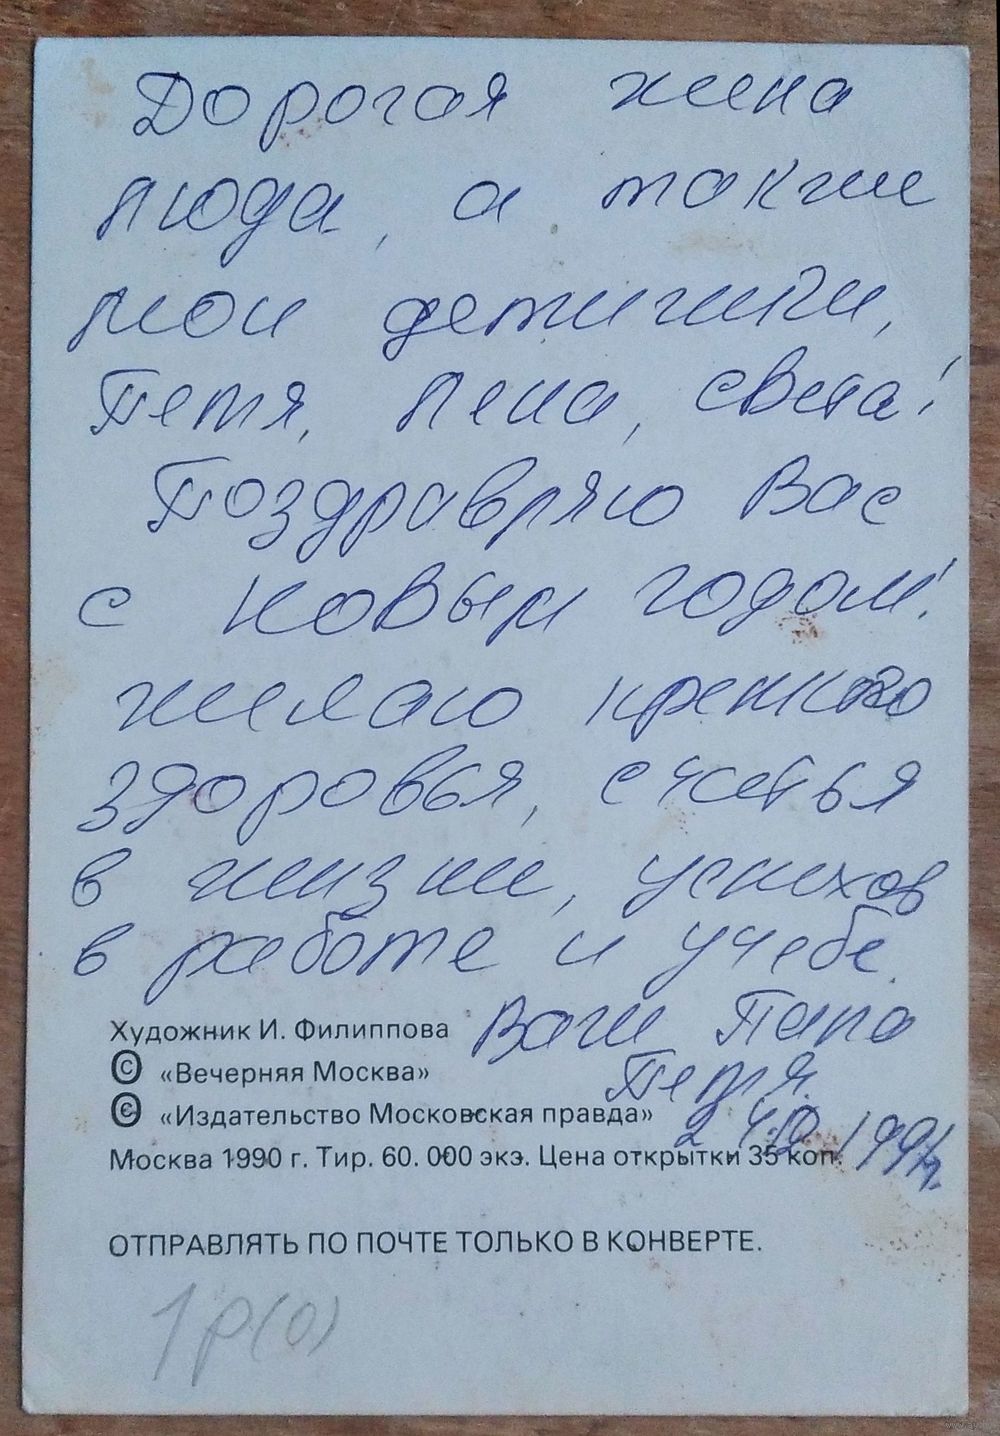 Дорогая жена
Люда, а также
мои детишки,
Петя, Лена, Света!
Поздравляю Вас
с Новым годом!
Желаю крепкого
здоровья, счастья
в жизни, успехов
в работе и учебе.
Ваш Папа
Петя.
1991г.
Художник И. Филиппова
© «Вечерняя Москва»
© «Издательство Московская правда»
Москва 1990 г. Тир. 60. 000 экз. Цена открытки 35 коп.
ОТПРАВЛЯТЬ ПО ПОЧТЕ ТОЛЬКО В КОНВЕРТЕ.
1р(0)